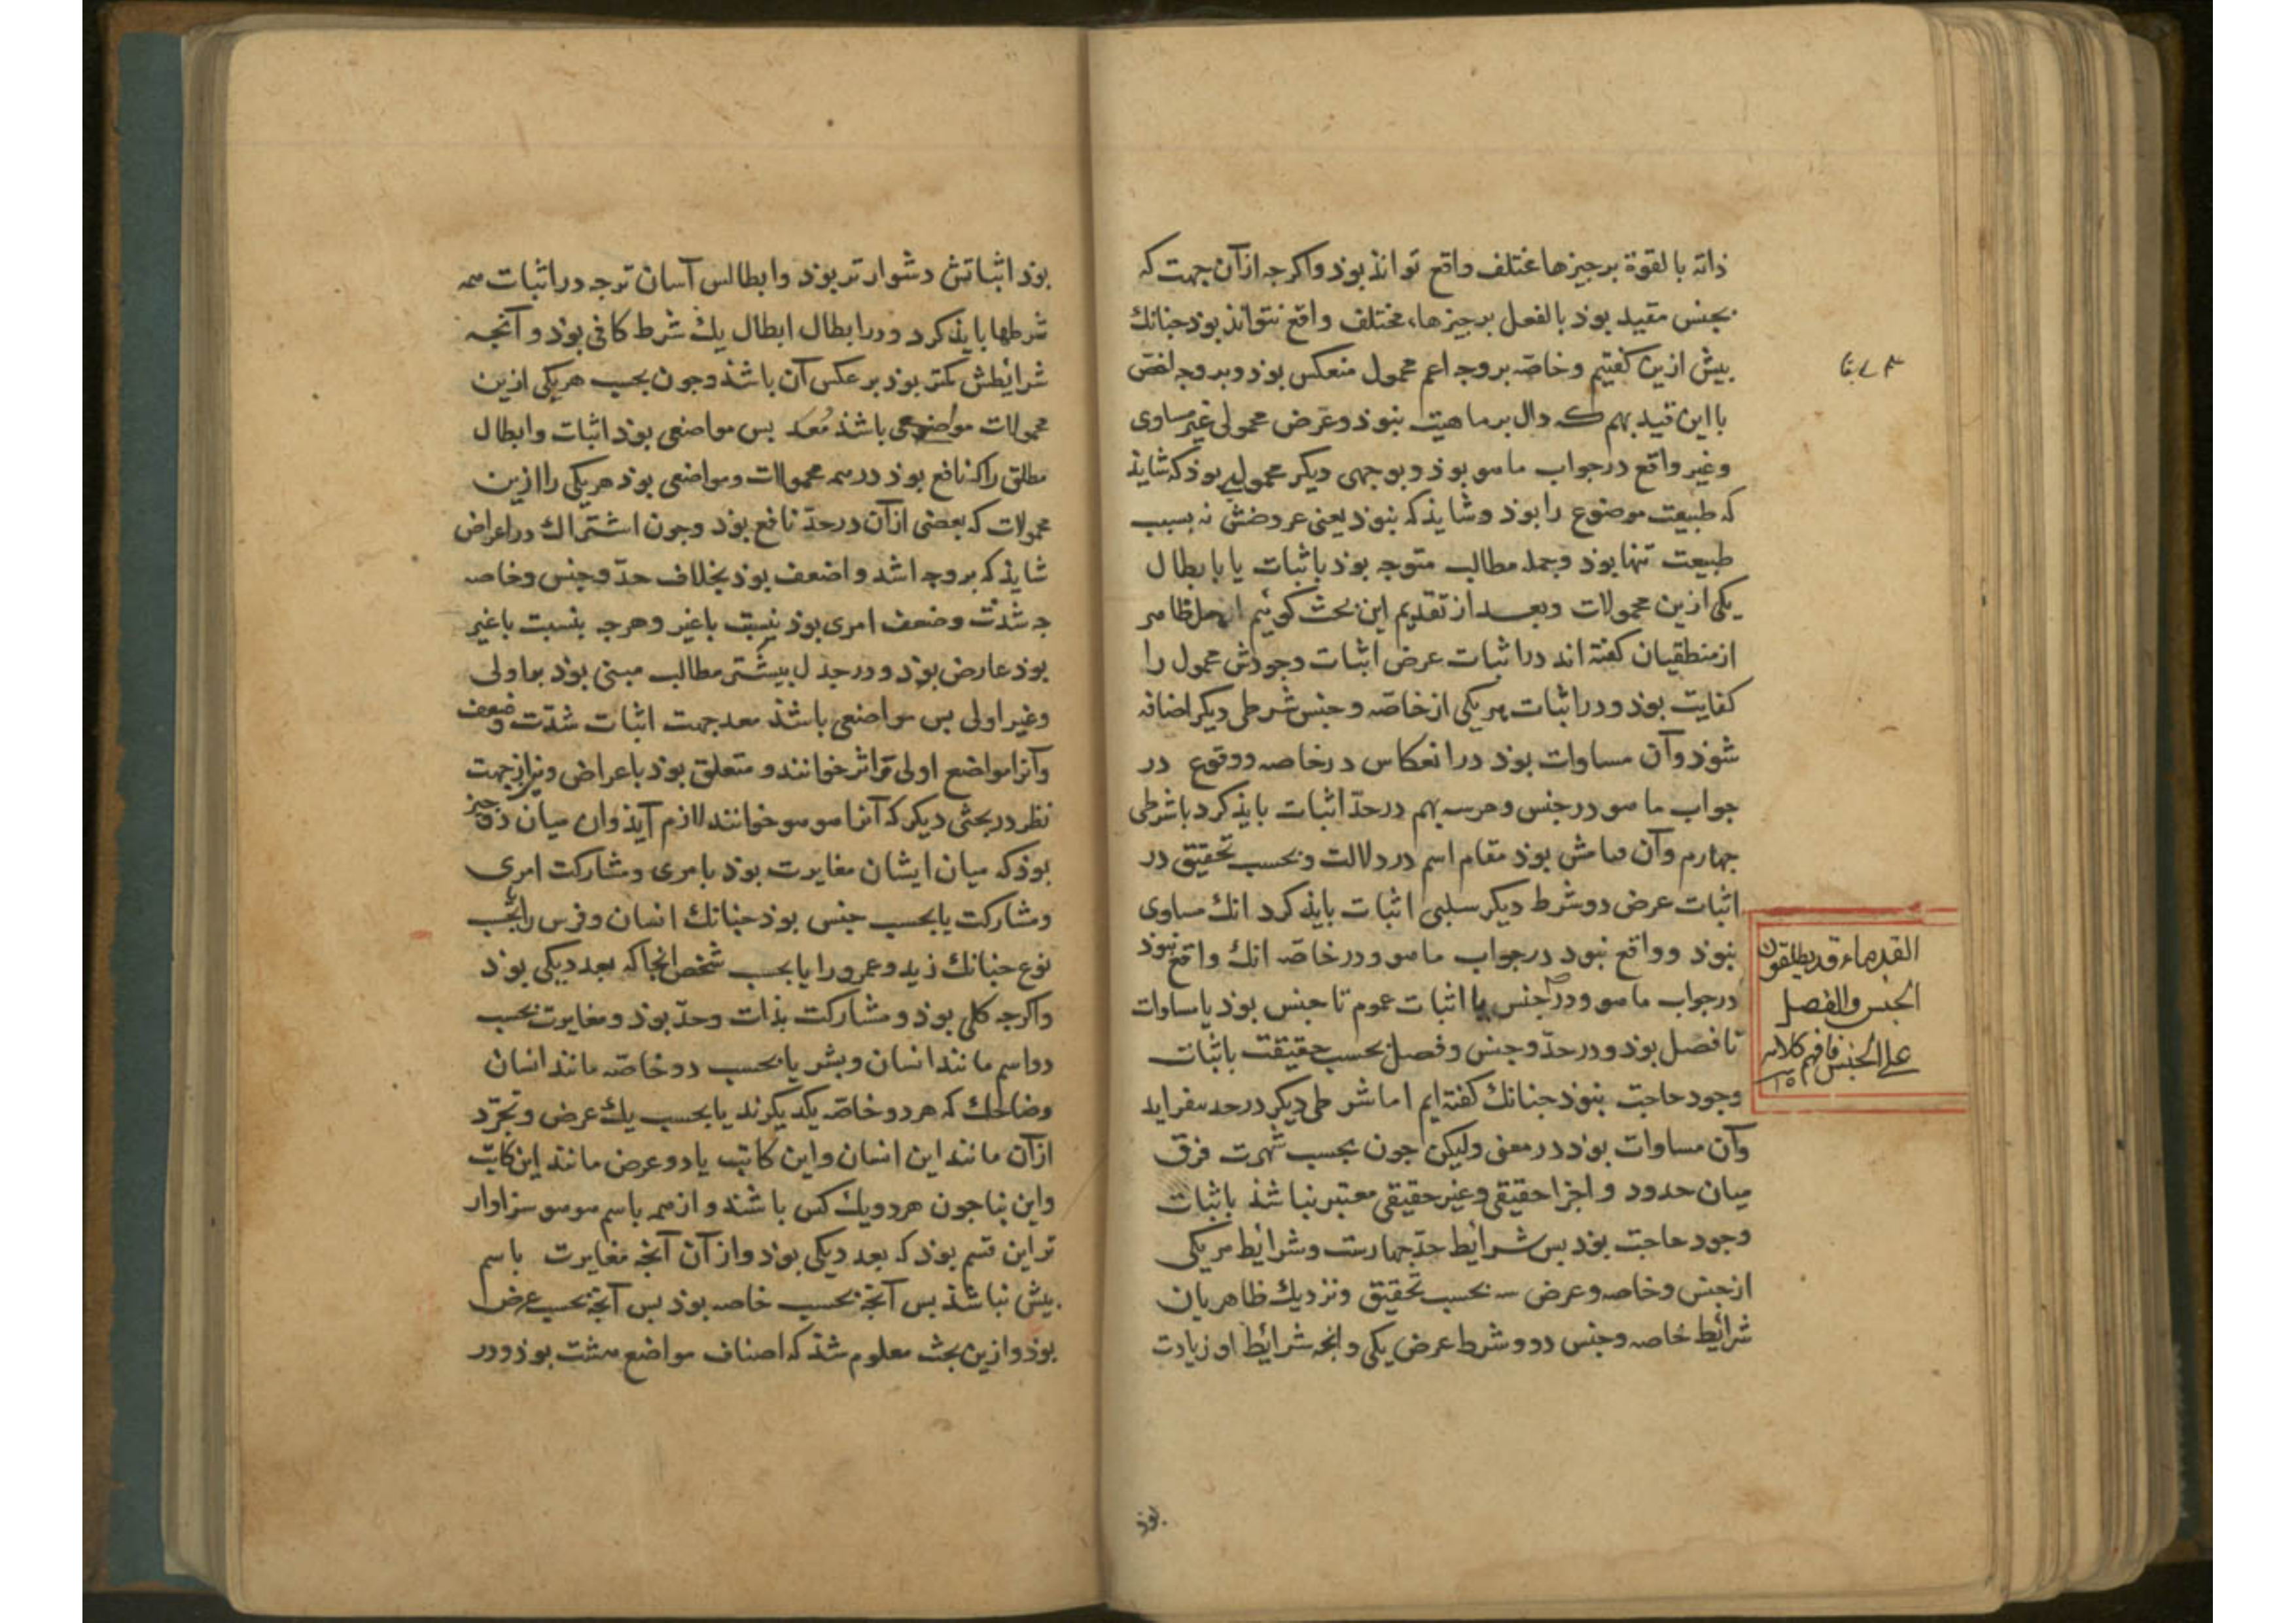 ذاته بالقوة برجیزها مختلف واقع تواند بوذ واکرجه ازآن جهت که
بجنس مقید بوذ بالفعل برجیزهاء مختلف واقع نتواند بوذ جنانك
بیش ازین کفتیم وخاصّه بروجه اعم محمول منعکس بوذ وبروجه اخصّ
با این قید بهم که دال برماهیت نبوذ وعرض محمولی غیر مساوی
وغیر واقع درجواب ماهو بوذ وبوجهی دیکر محمولی بوذ که شایذ
که طبیعت موضوع را بوذ وشایذ که نبوذ یعنی عروضش نه بسبب
طبیعت تنها بوذ وجمله مطالب متوجه بوذ باثبات یا بابطال
یکی ازین محمولات وبعد از تقدیم این بحث کوئیم اهل ظاهر
ازمنطقیان کفته اند دراثبات عرض اثبات وجودش محمول را
کفایت بوذ ودراثبات هریکی ازخاصّه وجنس شرطی دیکر اضافه
شوذ وآن مساوات بوذ درانعکاس درخاصه ووقوع در
جواب ماهو درجنس وهرسه بهم درحدّ اثبات بایذ کرد باشرطی
جهارم وآن قیامش بوذ مقام اسم دردلالت وبحسب تحقیق در
اثبات عرض دوشرط دیکر سلبی اثبات بایذ کرد انك مساوی
نبوذ وواقع نبود درجواب ماهو ودرخاصّه انك واقع نبوذ
درجواب ماهو ودرجنس یا اثبات عموم تا جنس بوذ یا مساوات
تا فصل بوذ ودرحدّ وجنس وفصل بحسب حقیقت باثبات
وجود حاجت نبوذ جنانك کفته ایم اما شرطی دیکر درحد بیفزاید
وآن مساوات بوذ درمعنی ولیکن جون بحسب شهرت فرق
میان حدود واجزا حقیقی وغیرحقیقی معتبر نباشذ باثبات
وجود حاجت بوذ بس شرائط حدّ جهارست وشرائط هریکی
ازجنس وخاصه وعرض سه بحسب تحقیق ونزدیك ظاهریان
شرائط خاصه وجنس دو وشرط عرض یکی وانجه شرائط او زیادت
القدماء قد یطلقون
الجنس والفصل
علی الجنس فافهم کلامه
بوذ
بوذ اثباتش دشوارتر بوذ وابطالش آسان ترجه دراثبات همه
شرطها بایذ کرد ودرابطال ابطال یك شرط کافی بوذ وآنجه
شرائطش کمتر بوذ برعکس آن باشذ وجون بحسب هریکی ازین
محمولات مواضعی باشذ معد بس مواضعی بوذ اثبات وابطال
مطلق را که نافع بوذ درهمه محمولات ومواضعی بوذ هریکی را ازین
محمولات که بعضی ازآن درحدّ نافع بوذ وجون اشتراك دراعراض
شایذ که بروجه اشد واضعف بوذ بخلاف حدّ وجنس وخاصه
جه شدّت وضعف امری بوذ بنسبت باغیر وهرجه بنسبت باغیر
بوذ عارض بوذ ودرجدل بیشتر مطالب مبنی بوذ براولی
وغیر اولی بس مواضعی باشذ معد جهت اثبات شدّت وضعف
وآنرا مواضع اولی وآثر خوانند ومتعلق بوذ باعراض ونیز ازجهت
نظر دربحثی دیکر که آنرا هوهو خوانند لازم آیذ وآن میان دوجیز
بوذ که میان ایشان مغایرت بوذ بامری ومشارکت امری
ومشارکت یا بحسب جنس بوذ جنانك انسان وفرس را یا بحسب
نوع جنانك زید وعمرو را یا بحسب شخص انجا که بعدد یکی بوذ
واکرجه کلی بوذ ومشارکت بذات وحدّ بوذ ومغایرت بحسب
دواسم مانند انسان وبشر یا بحسب دوخاصّه مانند انسان
وضاحك که هردو خاصّه یکدیکرند یا بحسب یك عرض وتجرّد
ازآن مانند این انسان واین کاتب یا دوعرض مانند این کاتب
واین بنا جون هردو یك کس باشند وازهمه باسم هوهو سزاوار
تر این قسم بوذ که بعدد یکی بوذ وازآن آنجه مغایرت باسم
بیش نباشذ بس آنجه بحسب خاصه بوذ بس آنجه بحسب عرض
بوذ وازین بحث معلوم شذ که اصناف مواضع هشت بوذ ودر